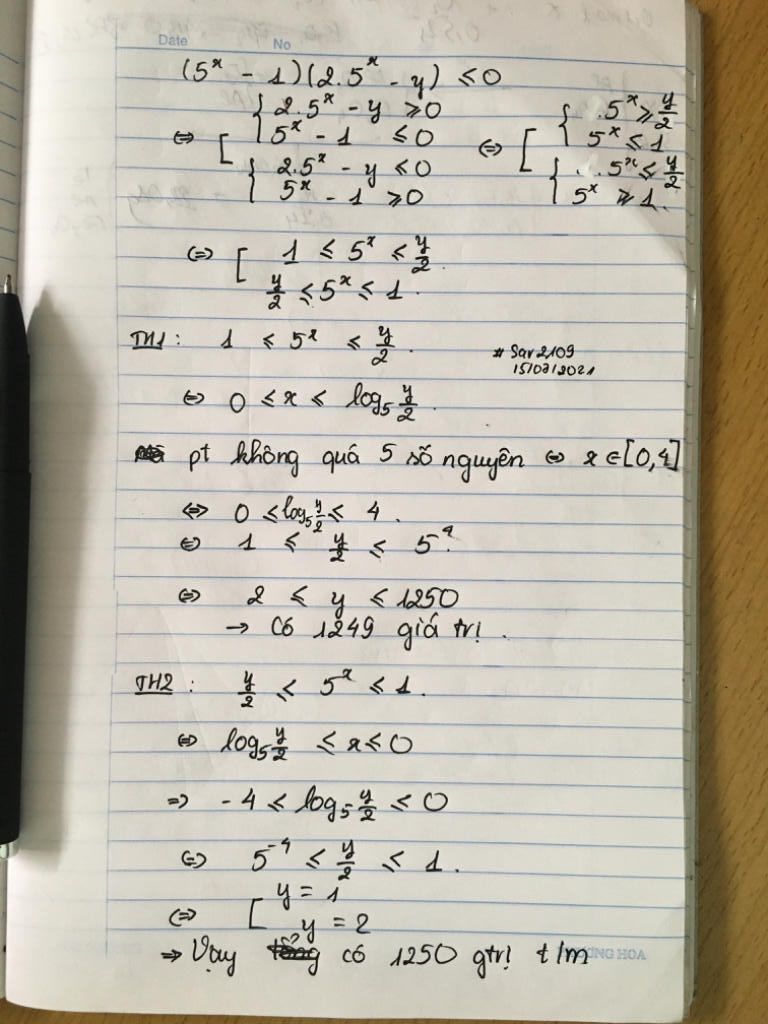 Date No
(5^x - 1)(2.5^x - y) ≤ 0
⇔ [ { 2.5^x - y ≥ 0
5^x - 1 ≤ 0
{ 2.5^x - y ≤ 0
5^x - 1 ≥ 0
⇔ [ { .5^x ≥ y/2
5^x ≤ 1
{ ..5^x ≤ y/2
5^x ≥ 1.
⇔ [ 1 ≤ 5^x ≤ y/2
y/2 ≤ 5^x ≤ 1.
TH1: 1 ≤ 5^x ≤ y/2.
# Sar2109
15/03/2021
⇔ 0 ≤ x ≤ log₅ y/2.
pt không quá 5 số nguyên ⇔ x ∈ [0,4]
⇔ 0 ≤ log₅ y/2 ≤ 4.
⇔ 1 ≤ y/2 ≤ 5^4.
⇔ 2 ≤ y ≤ 1250
→ Có 1249 giá trị.
TH2: y/2 ≤ 5^x ≤ 1.
⇔ log₅ y/2 ≤ x ≤ 0
⇒ -4 ≤ log₅ y/2 ≤ 0
⇔ 5^-4 ≤ y/2 ≤ 1.
⇔ [ y = 1
y = 2
⇒ Vậy có 1250 gtrị t/m